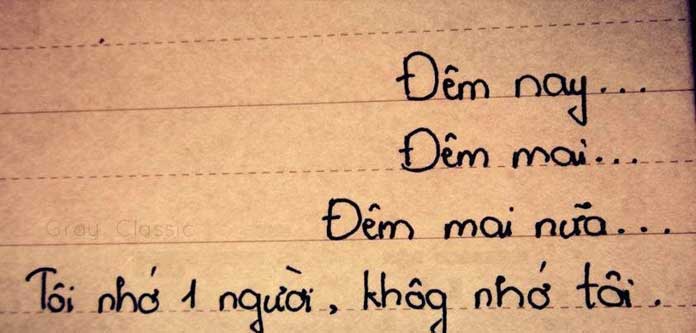 Đêm nay...
Đêm mai...
Gray Classic
Đêm mai nữa...
Tôi nhớ 1 người, khôg nhớ tôi.